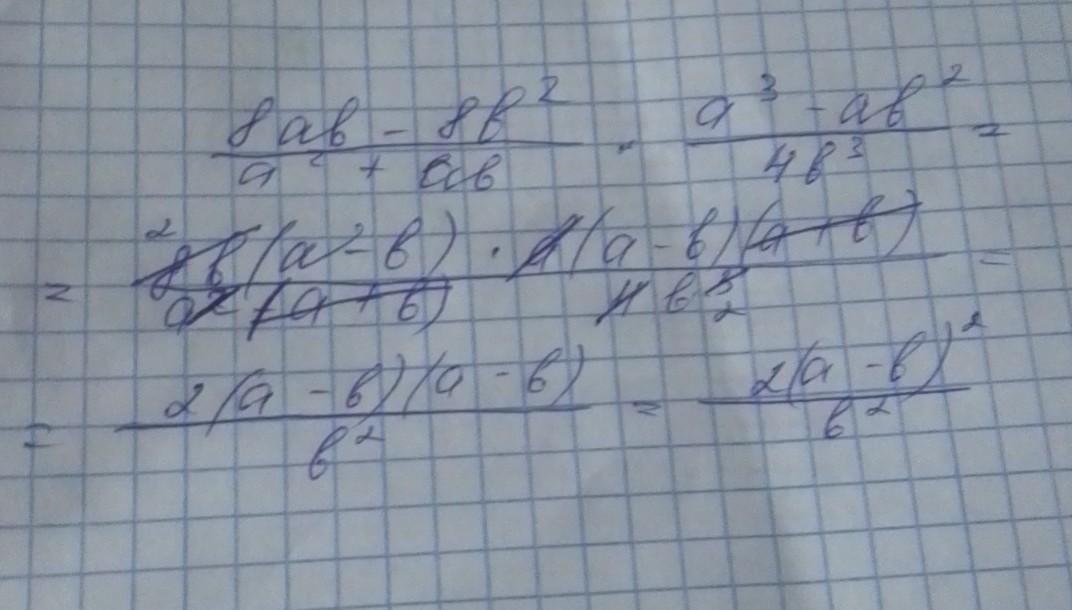 (8ab - 8b²)/(a² + ab) · (a³ - ab²)/(4b³) =
= (8b(a² - b) · a(a - b)(a + b))/(a(a + b) 4b³) =
= (2(a - b)(a - b))/(b²) = (2(a - b)²)/(b²)